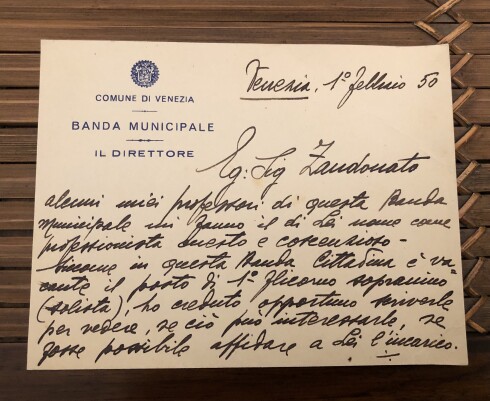 COMUNE DI VENEZIA
BANDA MUNICIPALE
IL DIRETTORE
Venezia, 1° febbraio 50
Eg: Sig Zandonato
alcuni miei professori di questa Banda
Municipale mi fanno il di Lei nome come
professionista onesto e coscenzioso -
Siccome in questa Banda Cittadina è va-
cante il posto di 1° flicorno sopranino
(solista), ho creduto opportuno scriverle
per vedere, se ciò può interessarle, se
fosse possibile affidare a Lei l'incarico.